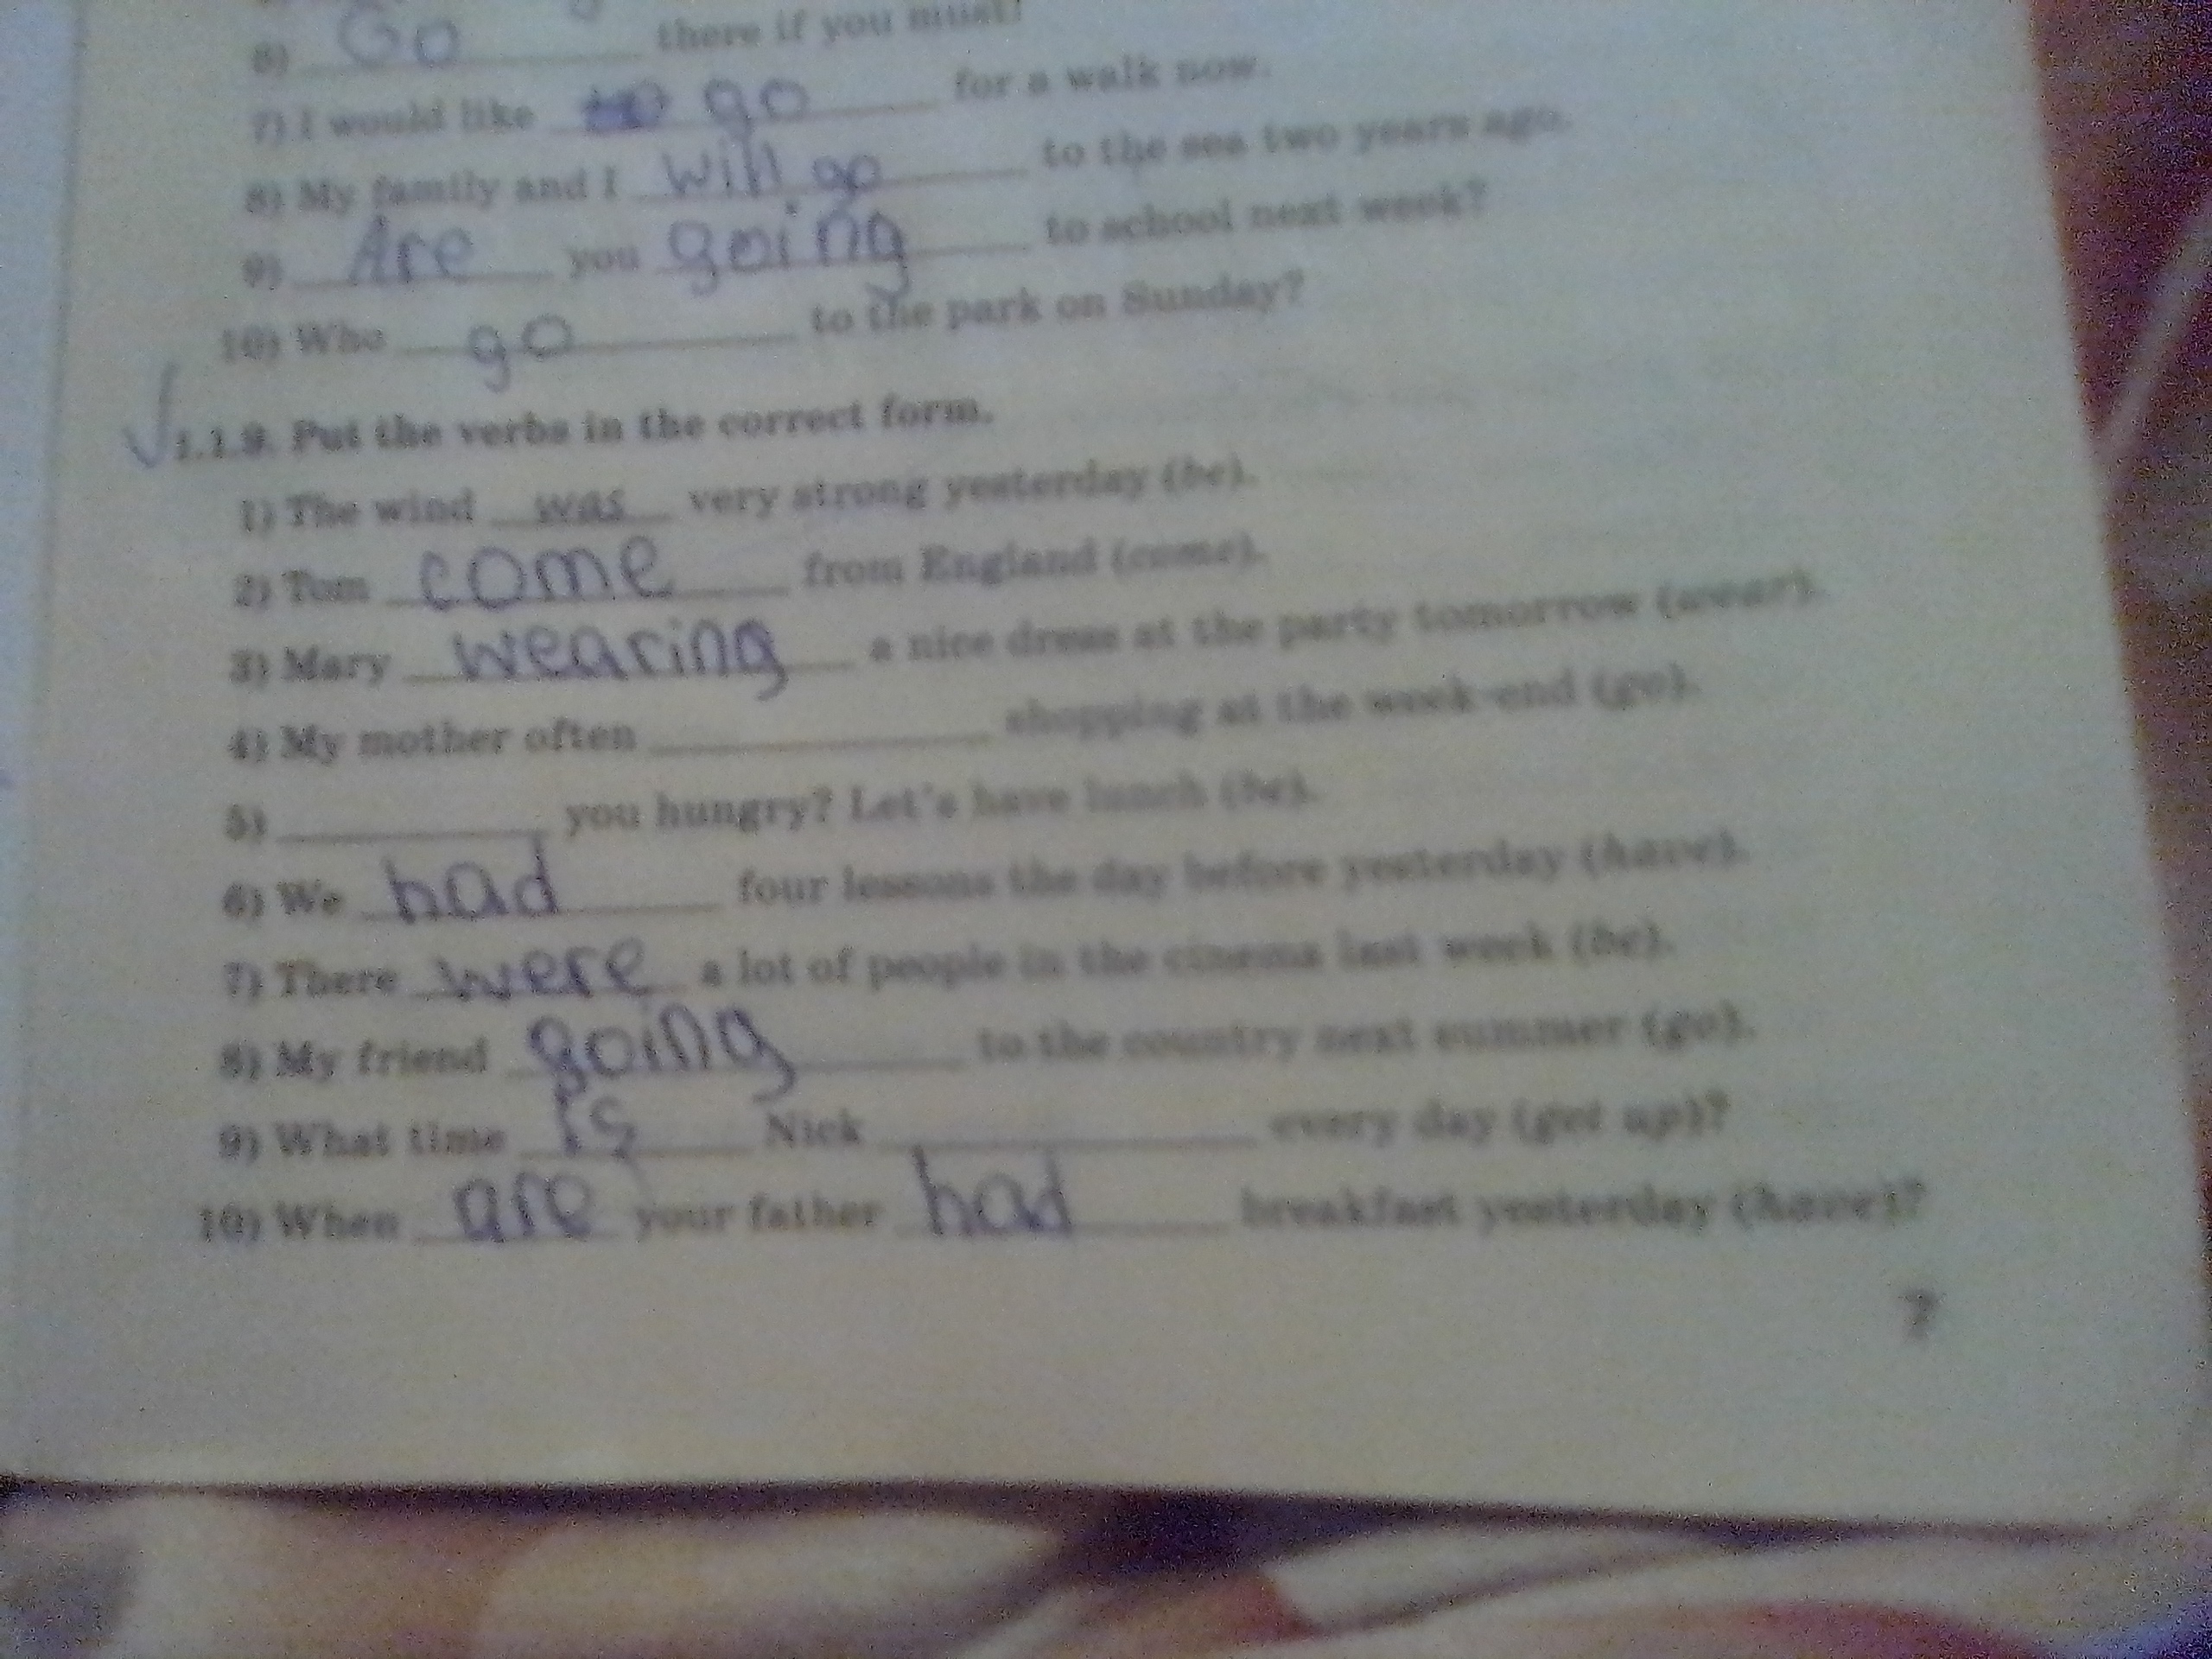 6) Go there if you must!
7) I would like to go for a walk now.
8) My family and I will go to the sea two years ago.
9) Are you going to school next week?
10) Who go to the park on Sunday?
1.1.9. Put the verbs in the correct form.
1) The wind was very strong yesterday (be).
2) Tom come from England (come).
3) Mary wearing a nice dress at the party tomorrow (wear).
4) My mother often ____ shopping at the week-end (go).
5) ____ you hungry? Let's have lunch (be).
6) We had four lessons the day before yesterday (have).
7) There were a lot of people in the cinema last week (be).
8) My friend going to the country next summer (go).
9) What time is Nick ____ every day (get up)?
10) When are your father had breakfast yesterday (have)?
7